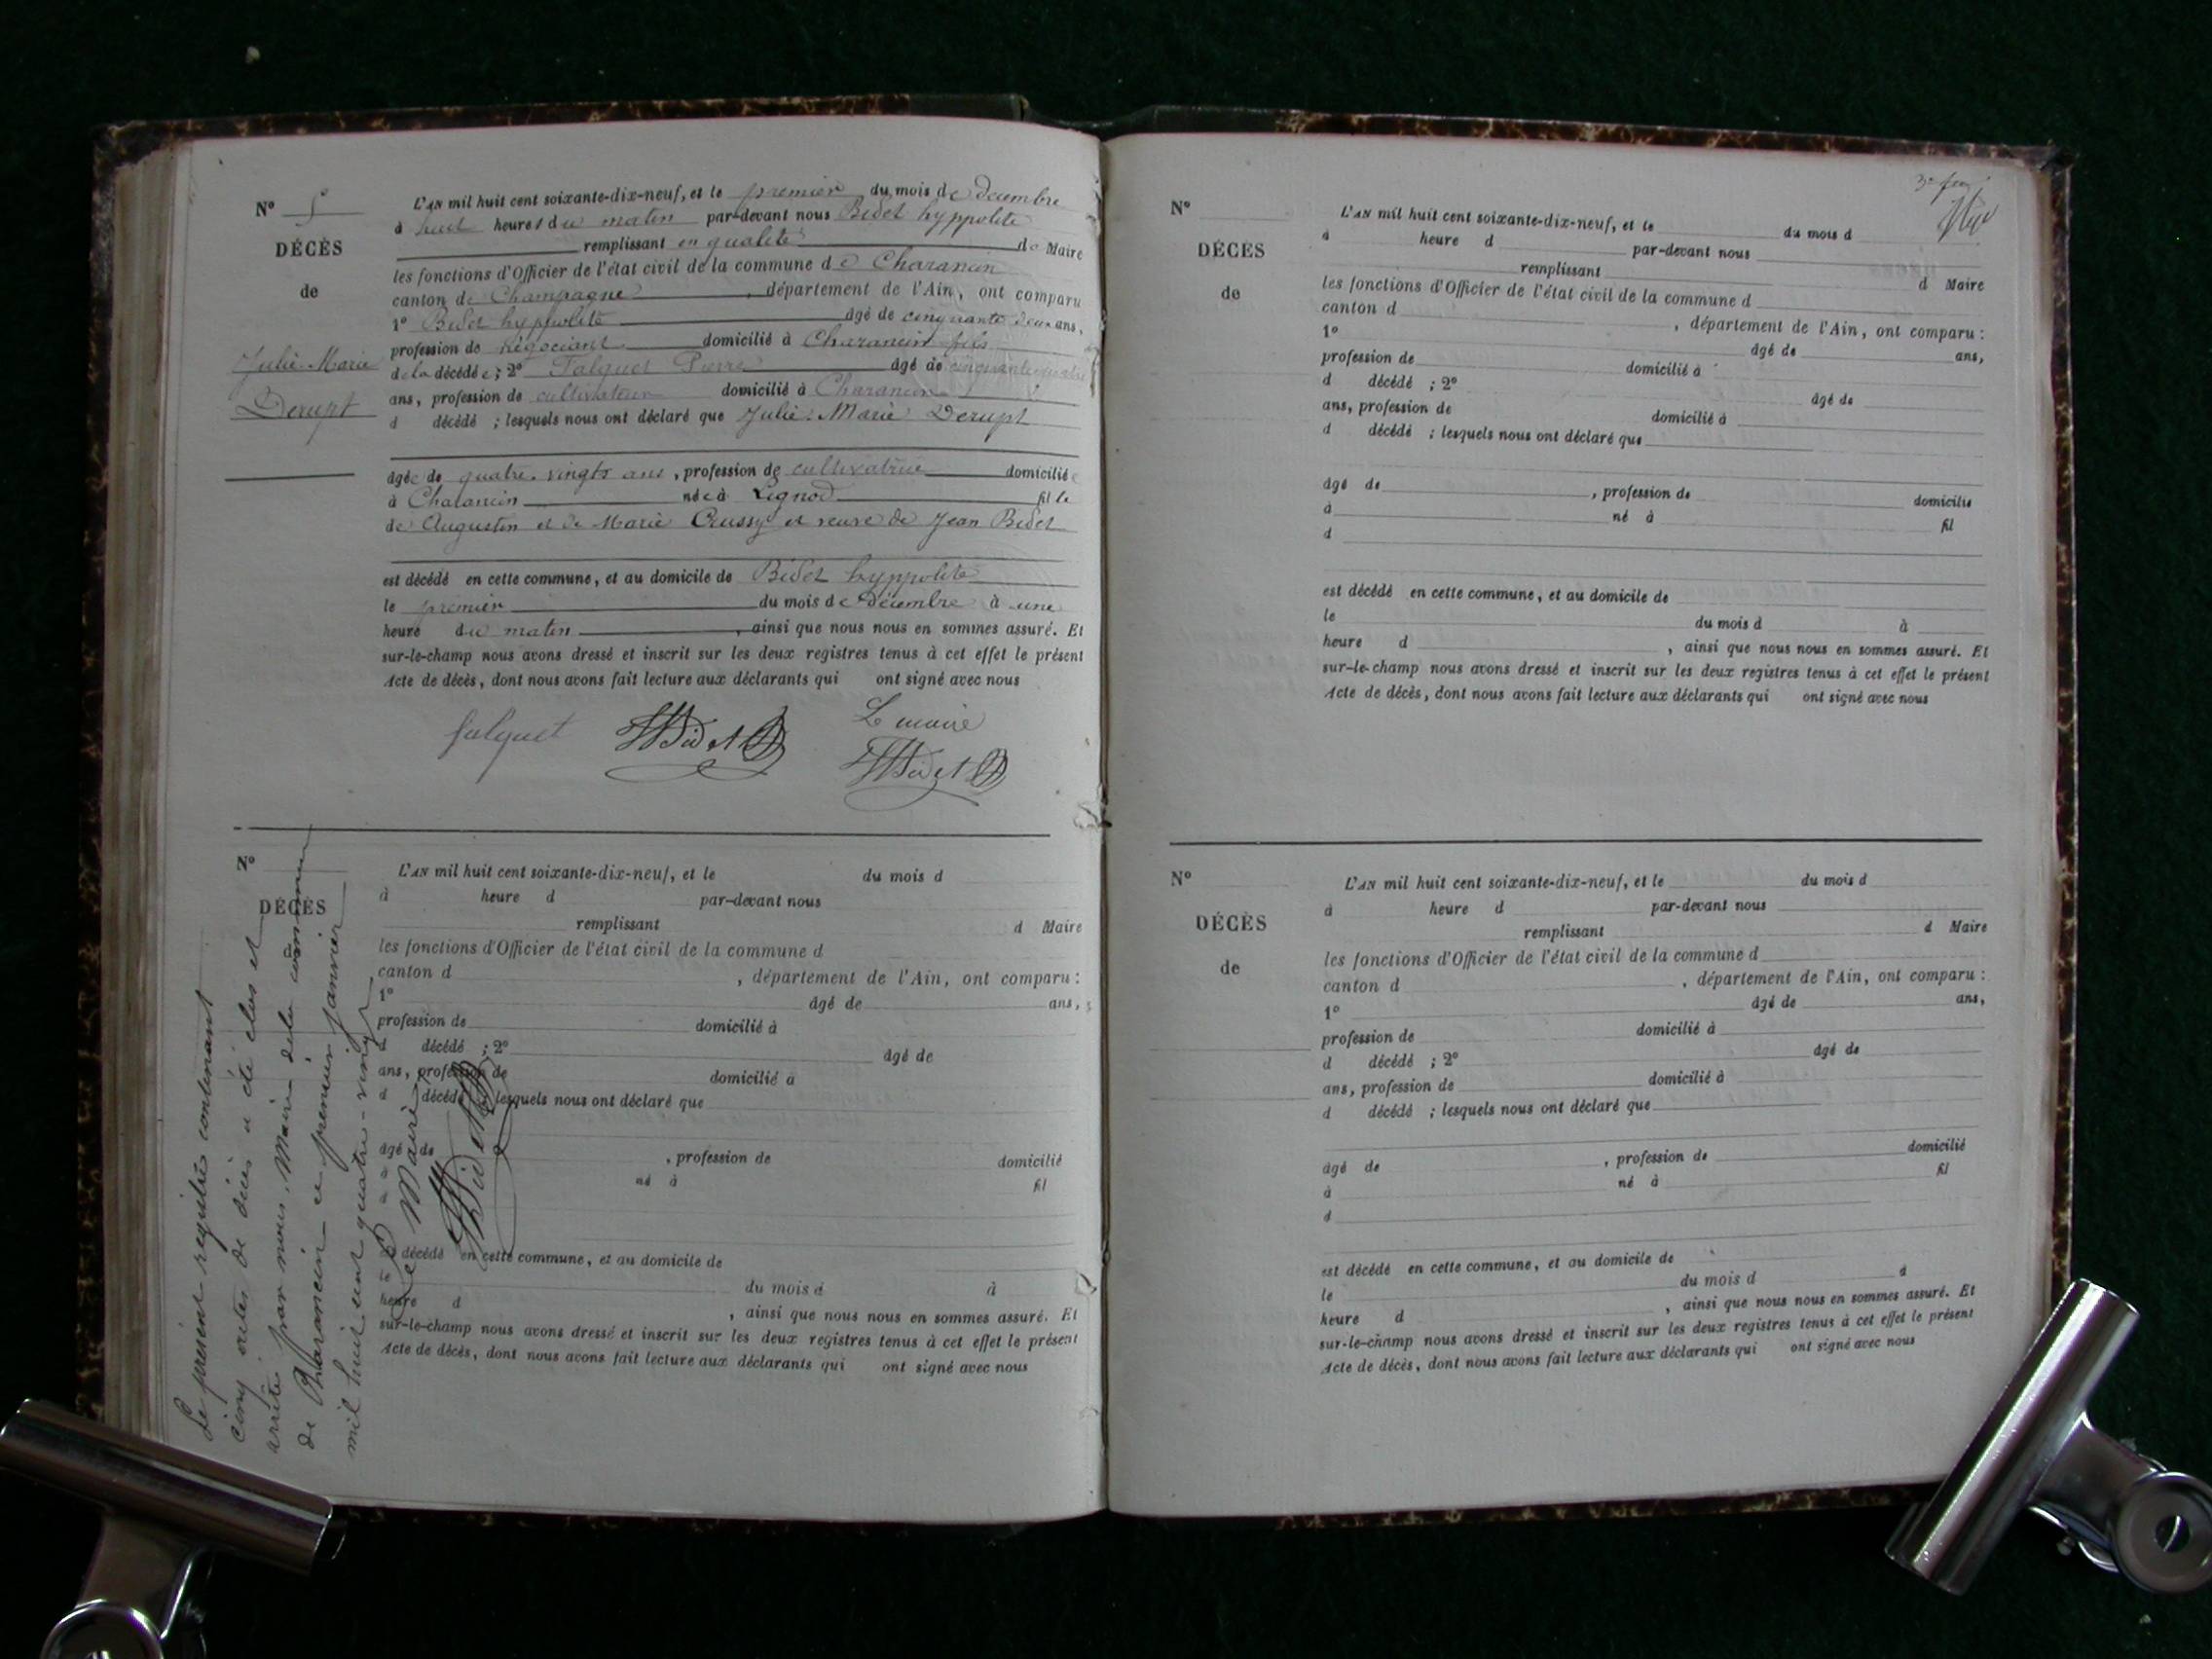 N° 5
DÉCÈS
de
Julie-Marie
Derupt
L'AN mil huit cent soixante-dix-neuf, et le premier du mois de décembre
à huit heures du matin par-devant nous Bidet hyppolite
remplissant en qualité de Maire
les fonctions d'Officier de l'état civil de la commune de Charancin
canton de Champagne, département de l'Ain, ont comparu
1° Bidet hyppolite âgé de cinquante deux ans,
profession de négociant domicilié à Charancin fils
de la décédée; 2° Falquet Pierre âgé de cinquante
ans, profession de cultivateur domicilié à Charancin
d décédé ; lesquels nous ont déclaré que Julie-Marie Derupt
âgée de quatre-vingts ans, profession de cultivatrice domiciliée
à Charancin née à Lignod fille
de Augustin et de Marie Crussy et veuve de Jean Bidet
est décédé en cette commune, et au domicile de Bidet hyppolite
le premier du mois de décembre à une
heure du matin, ainsi que nous nous en sommes assuré. Et
sur-le-champ nous avons dressé et inscrit sur les deux registres tenus à cet effet le présent
Acte de décès, dont nous avons fait lecture aux déclarants qui ont signé avec nous
Le maire
falquet HBidet HBidet
N°
DÉCÈS
L'AN mil huit cent soixante-dix-neuf, et le du mois d
à heure d par-devant nous
remplissant d Maire
les fonctions d'Officier de l'état civil de la commune d
canton d , département de l'Ain, ont comparu :
1° âgé de ans,
profession de domicilié à
d décédé ; 2° âgé de
ans, profession de domicilié à
d décédé ; lesquels nous ont déclaré que
âgé de , profession de domicilié
à né à fil
d
est décédé en cette commune, et au domicile de
le du mois d à
heure d , ainsi que nous nous en sommes assuré. Et
sur-le-champ nous avons dressé et inscrit sur les deux registres tenus à cet effet le présent
Acte de décès, dont nous avons fait lecture aux déclarants qui ont signé avec nous
Le présent registre contenant
cinq actes de décès a été clos et
arrêté par nous, Maire de la commune
de Charancin ce premier janvier
mil huit cent quatre-vingt
Le Maire
HBidet
N°
DÉCÈS
de
L'AN mil huit cent soixante-dix-neuf, et le du mois d
à heure d par-devant nous
remplissant d Maire
les fonctions d'Officier de l'état civil de la commune d
canton d , département de l'Ain, ont comparu :
1° âgé de ans,
profession de domicilié à
d décédé ; 2° âgé de
ans, profession de domicilié à
d décédé ; lesquels nous ont déclaré que
âgé de , profession de domicilié
à né à fil
d
est décédé en cette commune, et au domicile de
le du mois d à
heure d , ainsi que nous nous en sommes assuré. Et
sur-le-champ nous avons dressé et inscrit sur les deux registres tenus à cet effet le présent
Acte de décès, dont nous avons fait lecture aux déclarants qui ont signé avec nous
N°
DÉCÈS
de
L'AN mil huit cent soixante-dix-neuf, et le du mois d
à heure d par-devant nous
remplissant d Maire
les fonctions d'Officier de l'état civil de la commune d
canton d , département de l'Ain, ont comparu :
1° âgé de ans,
profession de domicilié à
d décédé ; 2° âgé de
ans, profession de domicilié à
d décédé ; lesquels nous ont déclaré que
âgé de , profession de domicilié
à né à fil
d
est décédé en cette commune, et au domicile de
le du mois d à
heure d , ainsi que nous nous en sommes assuré. Et
sur-le-champ nous avons dressé et inscrit sur les deux registres tenus à cet effet le présent
Acte de décès, dont nous avons fait lecture aux déclarants qui ont signé avec nous